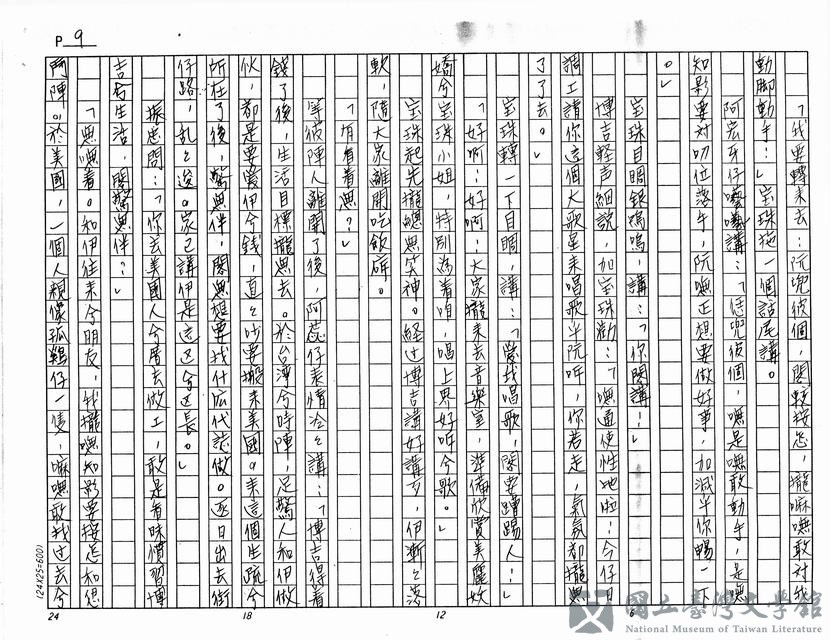 P 9
「我要轉來去；阮兜彼個，閣較按怎，攏嘛嘸敢對我
動腳動手！」宝珠拖一個話尾講。
阿宏牙仔囈囈講：「恁兜彼個，嘸是嘸敢動手，是嘸
知影要對叨位落手，阮嘸正想要做好事，加減半你暢一下
。」
宝珠目睭銀鴒鴒，講：「你閣講！」
博吉軽声細説，加宝珠勸：「嘸通使性地啦！今仔日
調工請你這個大歌星来唱歌半阮听，你若走，氣氛都攏無
了了去。」
宝珠轉一下目睭，講：「愛我唱歌，閣要蹧踢人！」
「好啊！好啊！大家攏来去音樂室，準備欣賞美麗奴
嬌今宝珠小姐，特別為着咱，唱上界好听今歌。」
宝珠起先攏總無笑神。経过博吉講好講歹，伊漸漸落
軟，隨大家離開吃飯廳。
「有看着無？」
等彼陣人離開了後，阿蕊仔表情冷冷講：「博吉得着
錢了後，生活目標攏無去。於台湾今時陣，足驚人和伊做
伙，都是要愛伊今錢，直直吵要搬来美國。来這個生疏今
所在了後，驚無伴，閣無想要找什麼代誌做。逐日出去街
仔路，乱乱逡。家己講伊是這区今区長。」
振忠問：「你去美國人今厝去做工，敢是看味慣習博
吉今生活，閣驚無伴？」
「嘸嘸着。知伊往来今朋友，我攏嘸知影要按怎和恁
鬥陣。於美國，一個人親像孤鷄仔一隻，嘛嘸敢找过去今
24
18
12
6
(24X25=600)
國立臺灣文學館
National Museum of Taiwan Literature